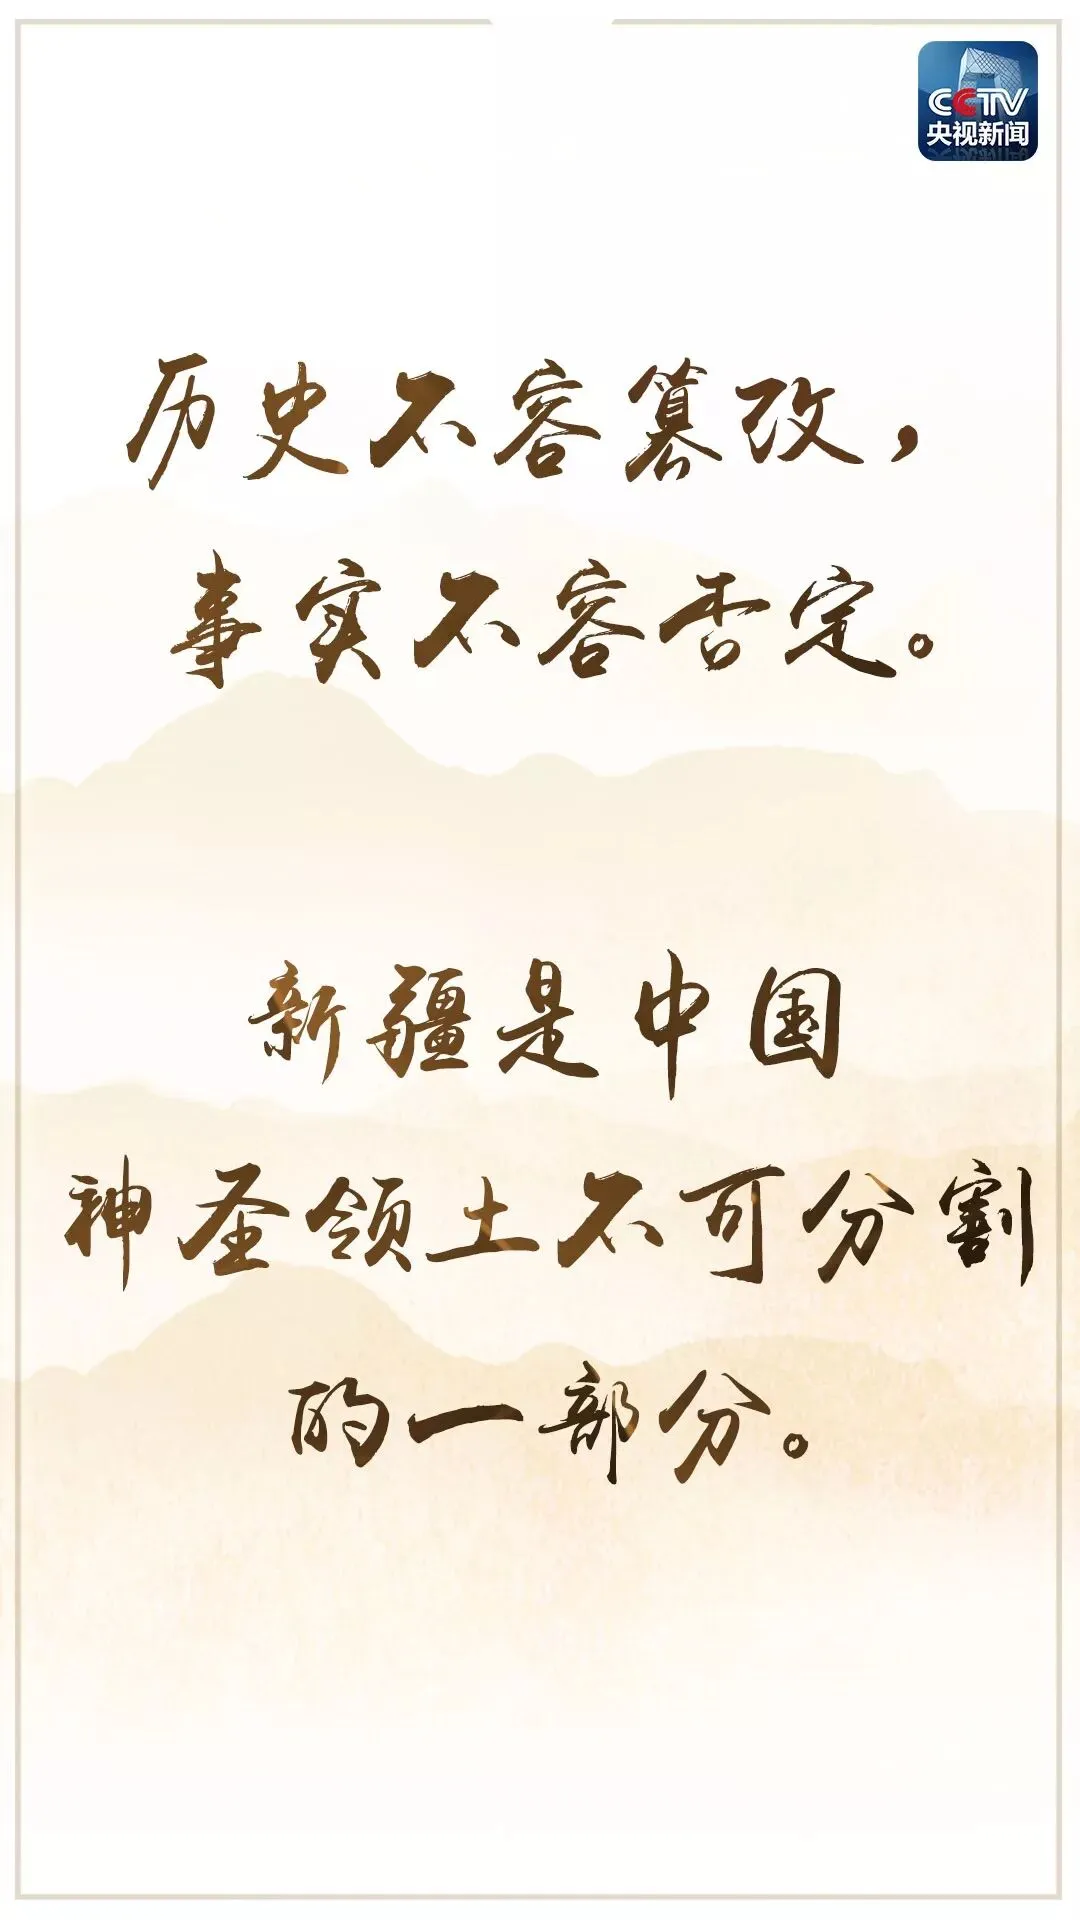 CCTV
央视新闻
历史不容篡改，
事实不容否定。
新疆是中国
神圣领土不可分割
的一部分。